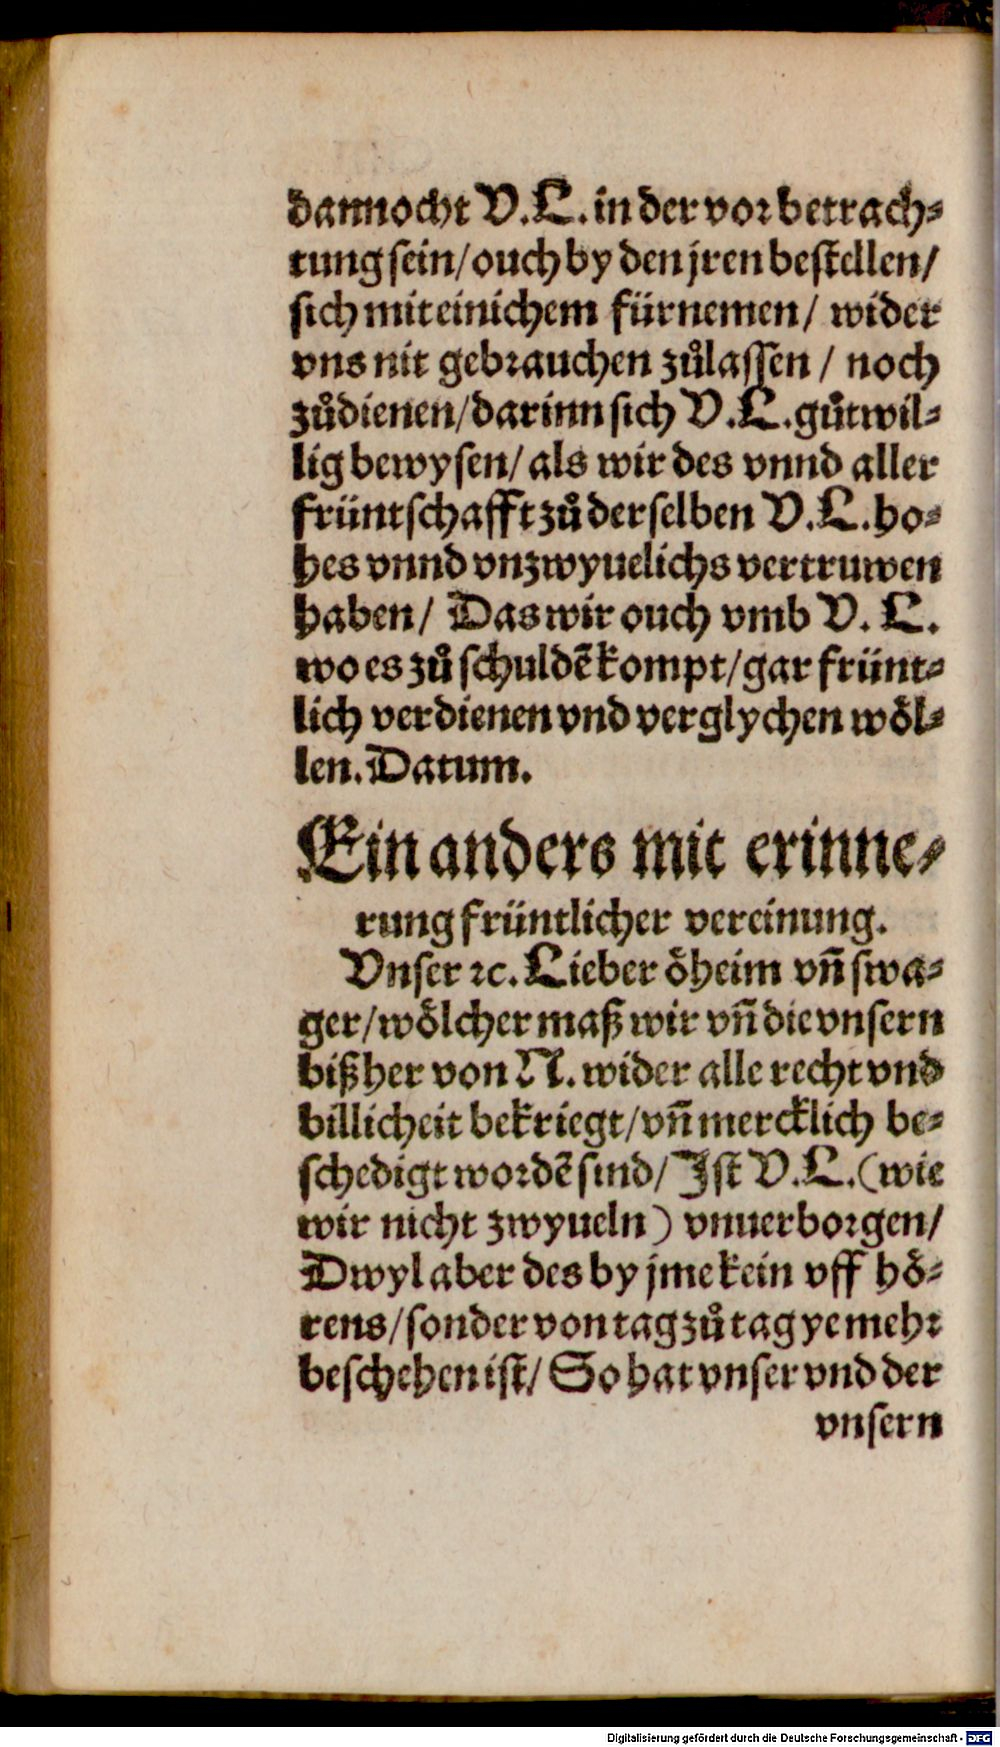 dannocht V.L. in der vor betrach⸗
tung sein/ ouch by den jren bestellen/
sich mit einichem fürnemen/ wider
vns nit gebrauchen zůlassen / noch
zůdienen/ darinn sich V.L. gůtwil⸗
lig bewysen/ als wir des vnnd aller
früntschafft zů derselben V.L. ho⸗
hes vnnd vnzwyuelichs vertruwen
haben/ Das wir ouch vmb V. L.
wo es zů schuldẽ kompt/ gar frünt⸗
lich verdienen vnd verglychen wöl⸗
len. Datum.
Ein anders mit erinne⸗
rung früntlicher vereinung.
Vnser ꝛc. Lieber öheim vñ swa⸗
ger/ wölcher maß wir vñ die vnsern
bißher von N. wider alle recht vnd
billicheit bekriegt/ vñ mercklich be⸗
schedigt wordẽ sind/ Ist V.L. (wie
wir nicht zwyueln) vnuerborgen/
Dwyl aber des by jme kein vff hö⸗
rens/ sonder von tag zů tag ye mehr
beschehen ist/ So hat vnser vnd der
vnsern
Digitalisierung gefördert durch die Deutsche Forschungsgemeinschaft - DFG